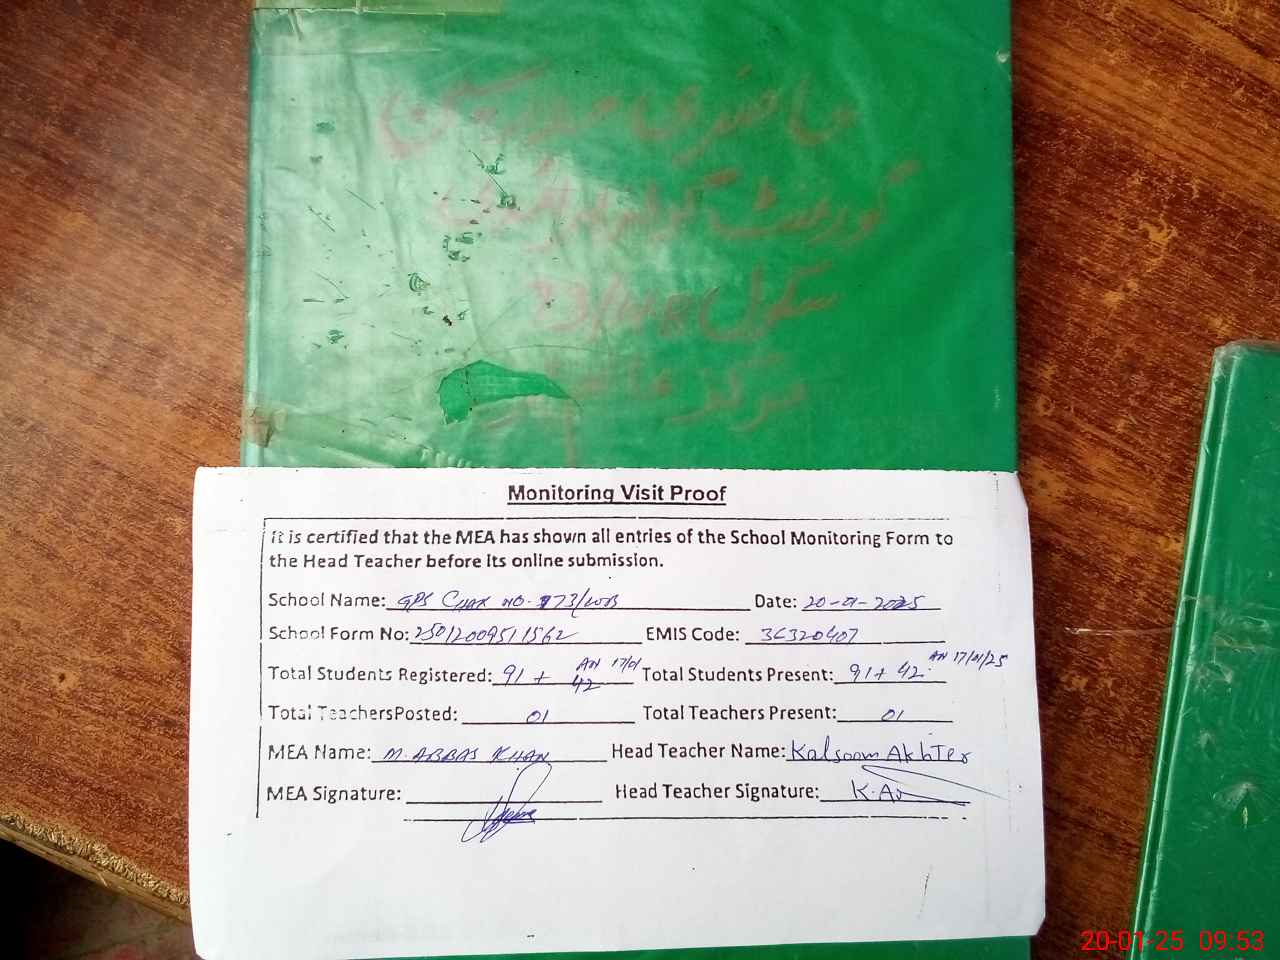 حاضری
گورنمنٹ گرلز پرائمری
سکول 73/WB
مرکز
Monitoring Visit Proof
It is certified that the MEA has shown all entries of the School Monitoring Form to
the Head Teacher before its online submission.
School Name: GPS Chak no. 73/WB Date: 20-01-2025
School Form No: 25012009511562 EMIS Code: 36320407
AN 17/01 AN 17/01/25
Total Students Registered: 91 + 42 Total Students Present: 91 + 42
Total TeachersPosted: 01 Total Teachers Present: 01
MEA Name: M. ABBAS KHAN Head Teacher Name: Kalsoom Akhter
MEA Signature: Head Teacher Signature: K.A
20-01-25 09:53